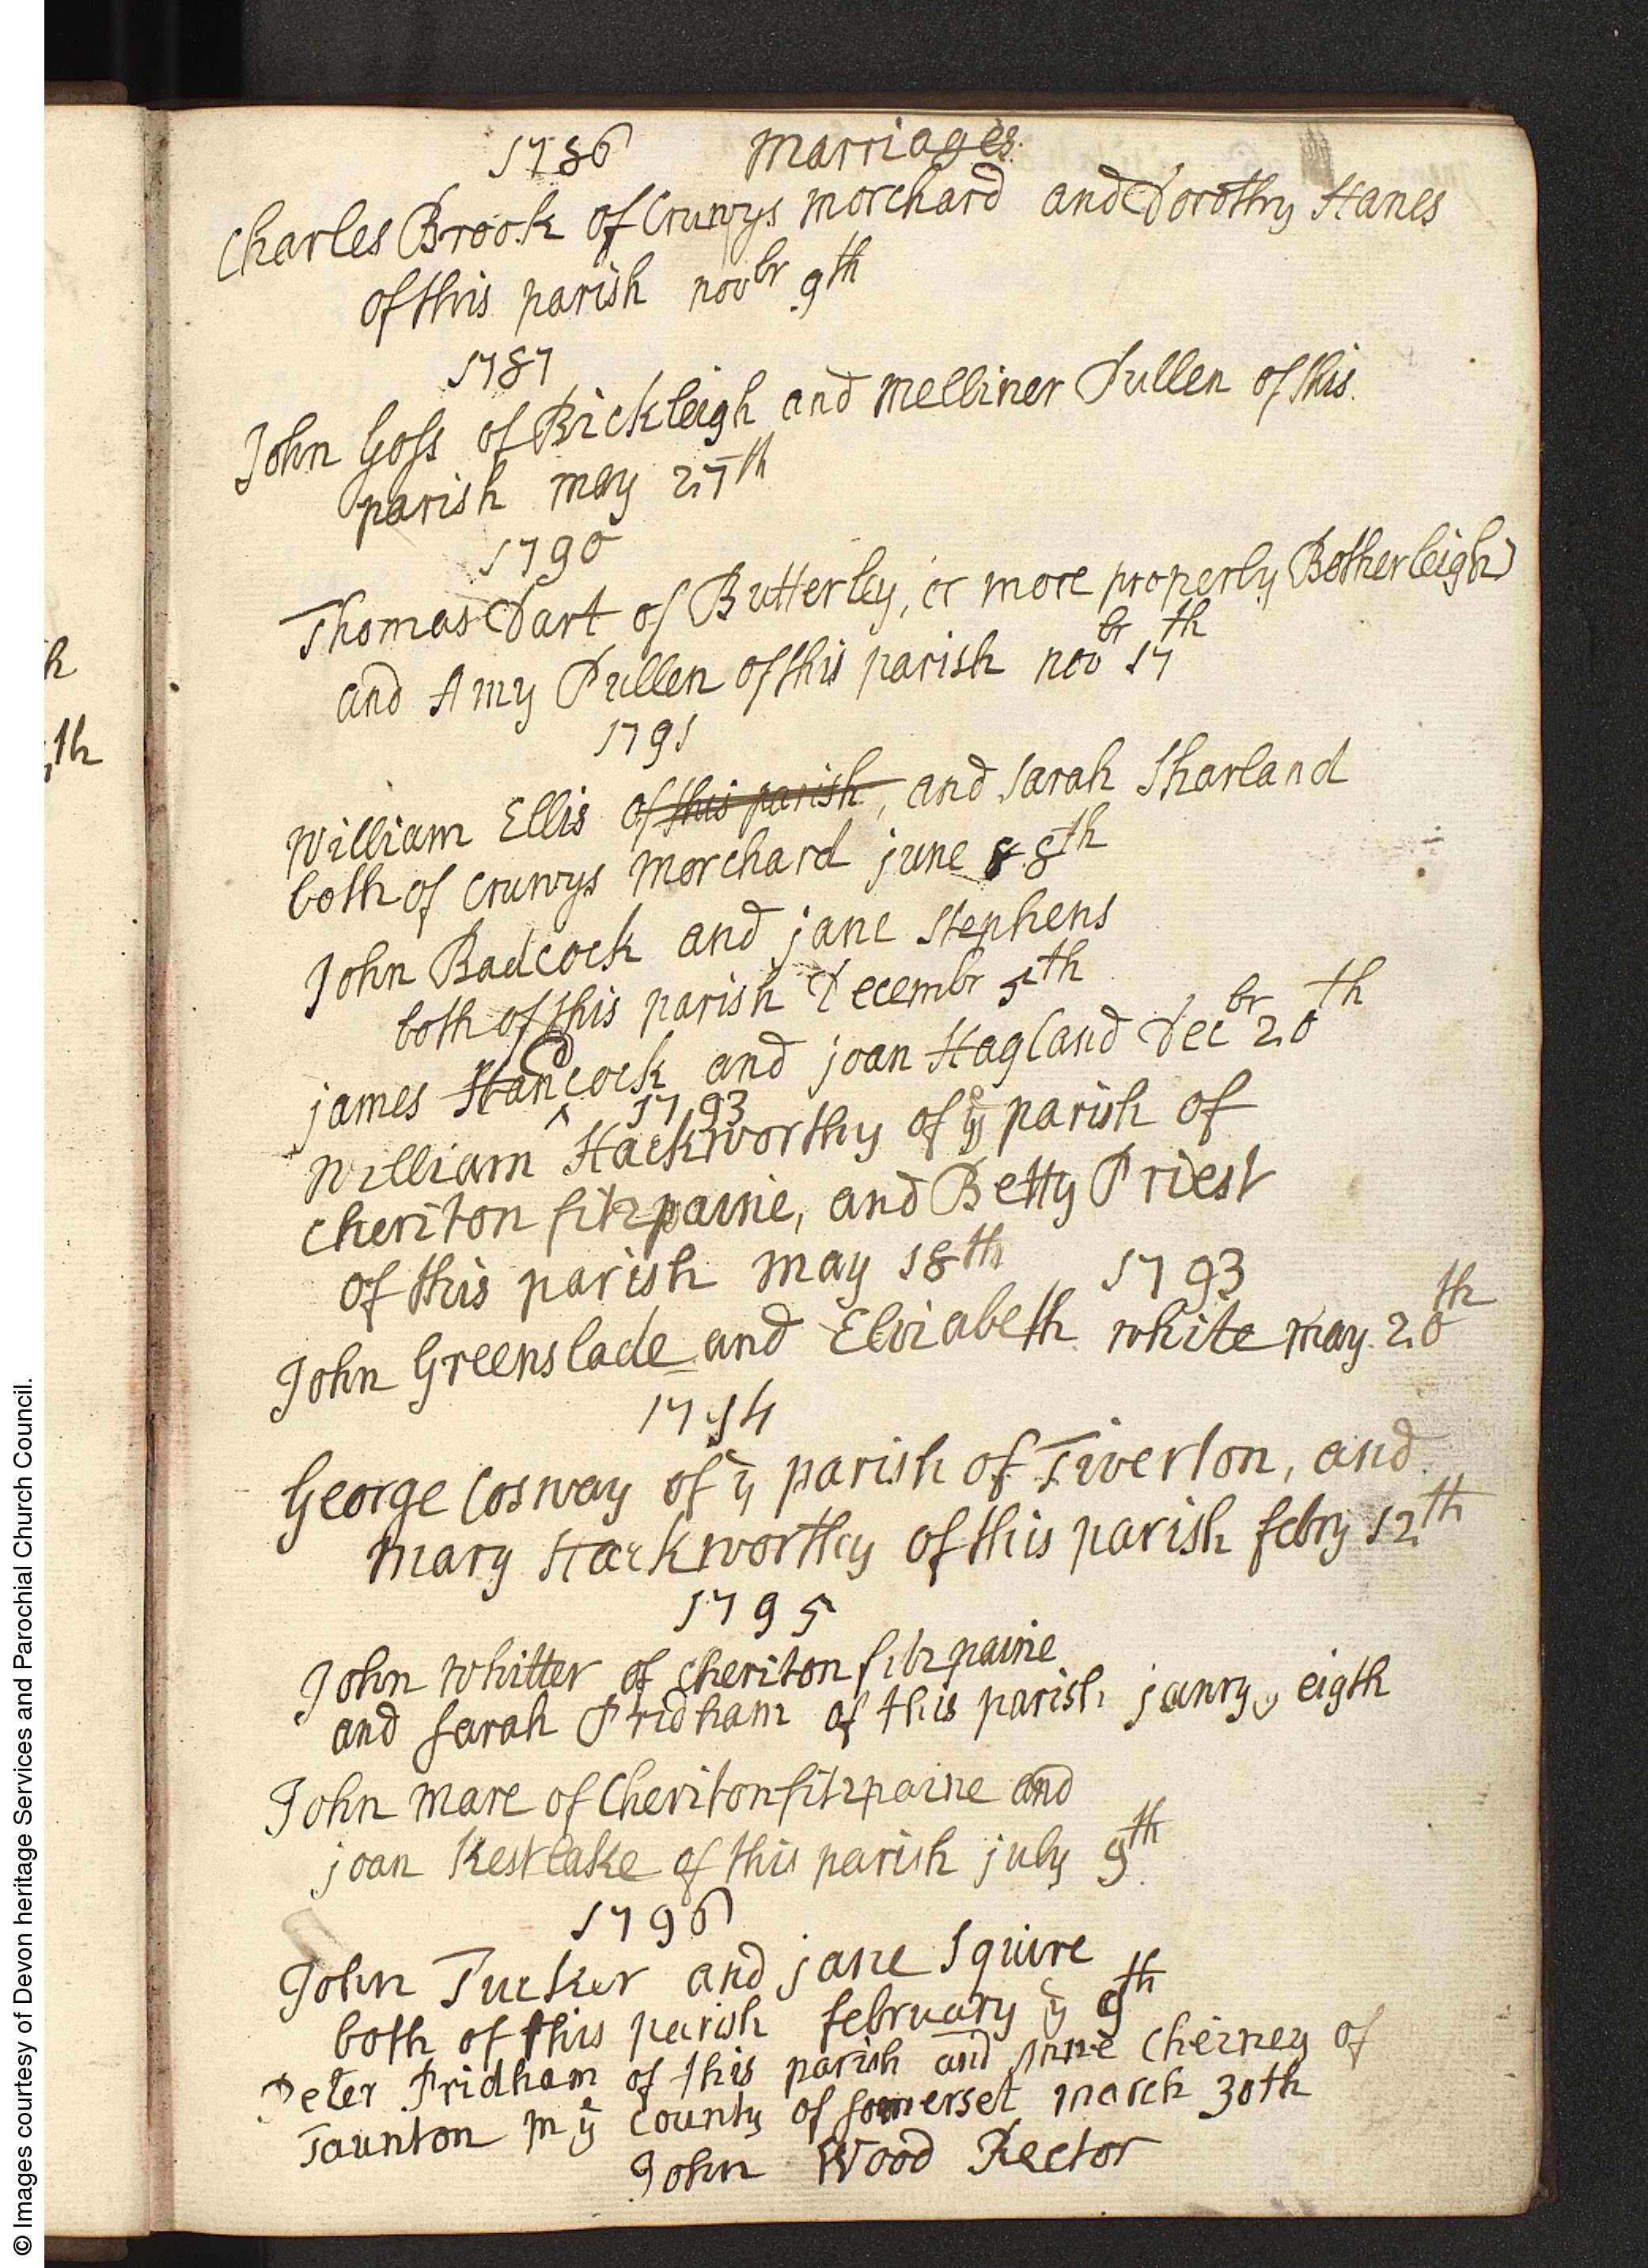 1786 marriages
Charles Brook of Cruwys morchard and Dorothy Hanes
of this parish novbr 9th
1787
John Goss of Bickleigh and melliner Pullen of this
parish may 27th
1790
Thomas Dart of Butterley, or more properly Botherleigh
and Amy Pullen of this parish novbr 17th
1791
William Ellis of this parish, and Sarah Sharland
both of cruwys morchard june 8 8th
John Badcock and jane Stephens
both of this parish Decembr 5th
james Hancock and joan Hagland Decbr 20th
1793
William Hackworthy of ye parish of
cheriton fitzpaine, and Betty Priest
of this parish may 18th 1793
John Greenslade and Elizabeth white may 20th
1794
George Cosway of ye parish of Tiverton, and
mary Hackworthy of this parish febry 12th
1795
John Whitter of cheriton fitzpaine
and Sarah Pridham of this parish janry eigth
John mare of Cheritonfitzpaine and
joan Kestlake of this parish july 9th
1796
John Tucker and jane Squire
both of this parish february ye 9th
Peter Pridham of this parish and Anne Cherney of
Taunton in ye County of Somerset march 30th
John Wood Rector
h
th
© Images courtesy of Devon heritage Services and Parochial Church Council.